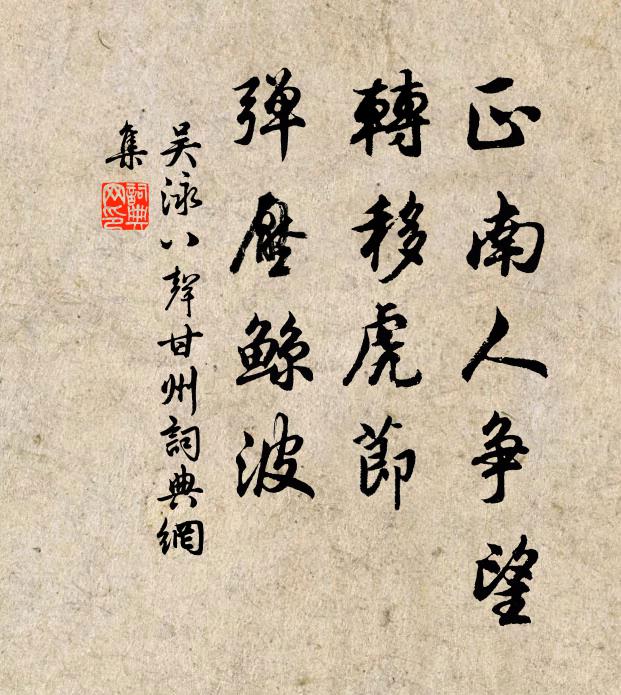 正南人争望
轉移虎節
弹壓鲸波
吴泳八聲甘州詞典網
集
詞典
网印